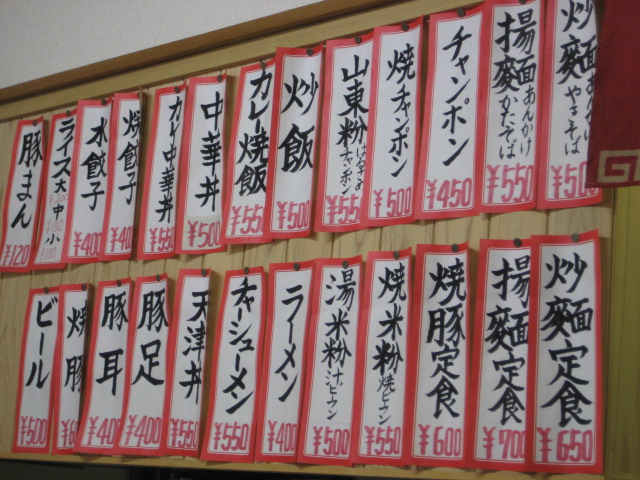 炒麺 あんかけ やきそば ¥500
揚麺 あんかけ かたそば ¥550
チャンポン ¥450
焼チャンポン ¥500
山東粉 はるさめ チャンポン ¥550
炒飯 ¥500
カレー焼飯 ¥550
中華丼 ¥500
カレー中華丼 ¥550
焼餃子 ¥400
水餃子 ¥400
ライス 大 ¥200 中 ¥150 小 ¥100
豚まん ¥120
炒麺定食 ¥650
揚麺定食 ¥700
焼豚定食 ¥600
焼米粉 焼ビーフン ¥550
湯米粉 汁ビーフン ¥500
ラーメン ¥400
チャーシューメン ¥550
天津丼 ¥550
豚足 ¥400
豚耳 ¥400
焼豚
ビール ¥500